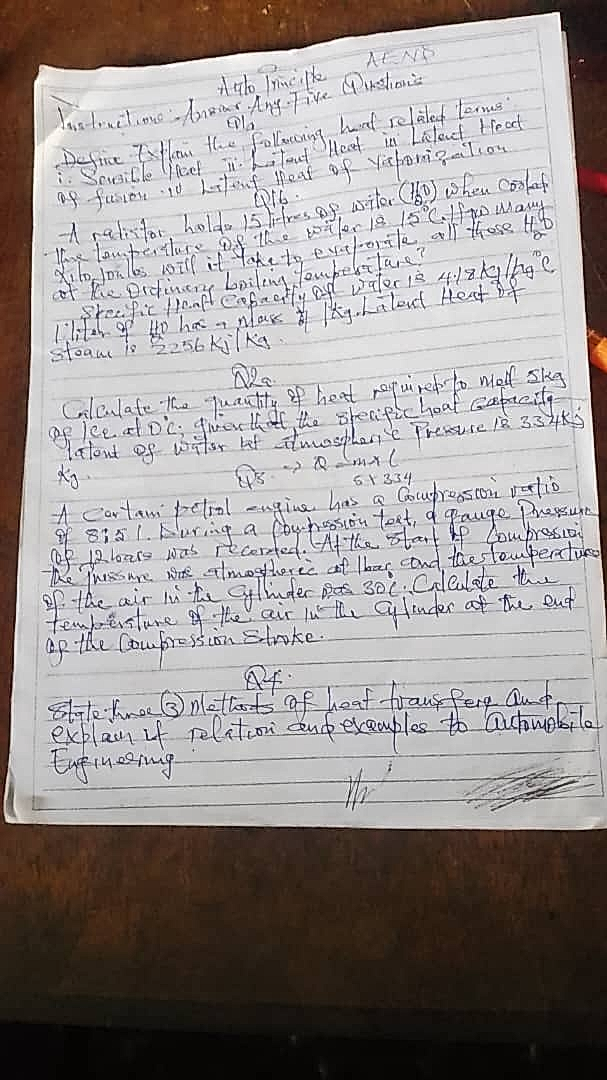 Auto Principle
Instructions:- Answer Any Five Questions
Q1a
Define Explain the following heat related terms:
i. Sensible Heat ii. Latent Heat iii Latent Heat
of fusion iv Latent Heat of Vaporization
Q1b.
A holds 15 litres of water (H20) when
the temperature of the water is 15°C. How Many
kilo Joules will it take to evaporate all those H20
at the Ordinary boiling temperature?
Specific Heat Capacity of water is 4.18kj/kg°C
1 liter of H0 has a Mass of 1kg. Latent Heat of
Steam is 2256kj/kg.
Q2a
Calculate the quantity of heat required to melt 5kg
of Ice at 0°C; given that the specific heat capacity
latent of water at atmospheric Pressure is 334kj
kg.
Q3. → Q = m x L
5 x 334
A Certain petrol engine has a Compression ratio
of 8.5:1. During a Compression test, a gauge Pressure
of 12bars was recorded. At the start of Compression
the Pressure was atmospheric at 1bar and the temperature
of the air in the cylinder was 30°C. Calculate the
temperature of the air in the cylinder at the end
of the Compression Stroke.
Q4.
State three (3) Methods of heat transfere and
explain it relation and examples to automobile
Engineering